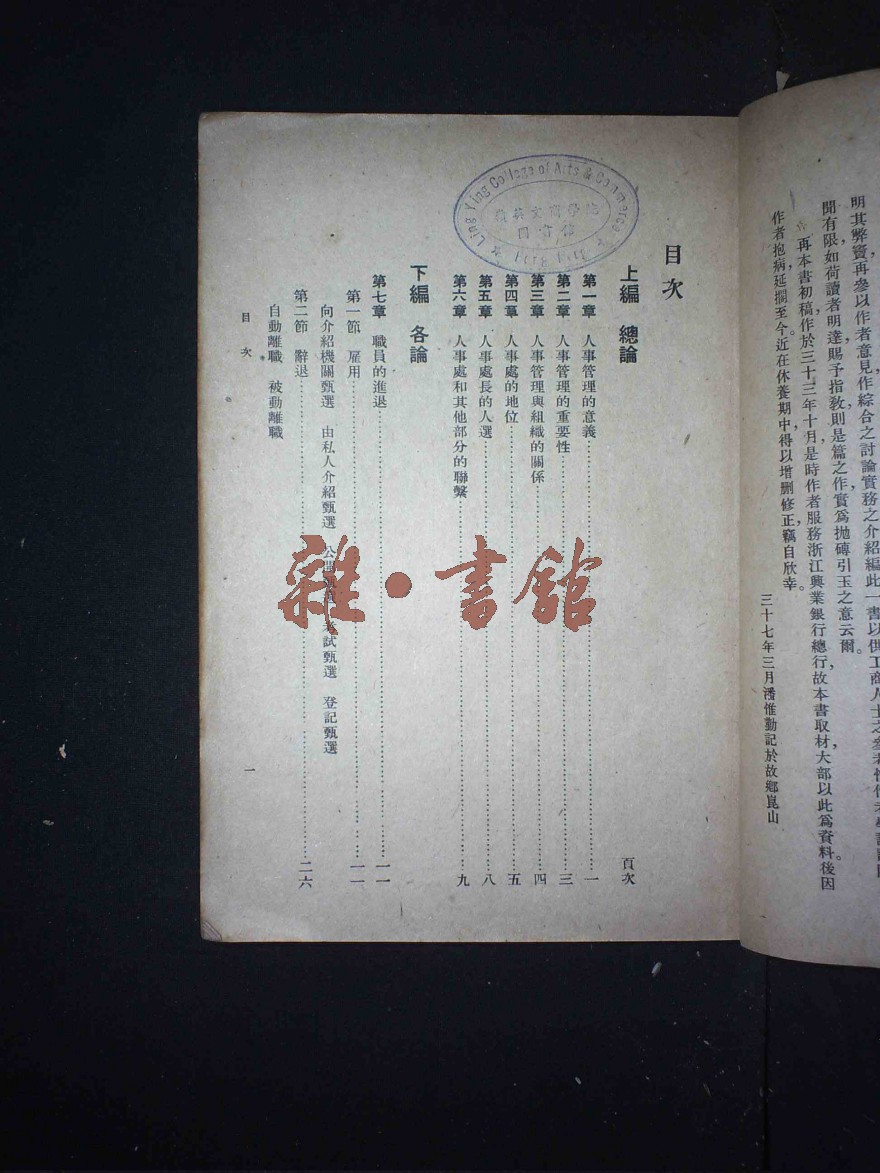 明其弊竇再參以作者意見作綜合之討論實務之介紹編此一書以供工商人士之參考
聞有限如荷讀者明達賜予指教則是篇之作實爲拋磚引玉之意云爾。
再本書初稿作於三十三年十月是時作者服務浙江興業銀行總行,故本書取材大部以此爲資料後因
作者抱病延擱至今。近在休養期中得以增删修正竊自欣幸。
三十七年三月潘惟勤記於故鄉崑山
Ling Ying College of Arts & Commerce
嶺英文商學院
圖書館
目次
上編 總論 頁次
第一章 人事管理的意義 一
第二章 人事管理的重要性 三
第三章 人事管理與組織的關係 四
第四章 人事處的地位 五
第五章 人事處長的人選 八
第六章 人事處和其他部分的聯繫 九
下編 各論
第七章 職員的進退 一一
第一節 雇用 一一
向介紹機關甄選 由私人介紹甄選 公開甄選 考試甄選 登記甄選
第二節 辭退 二六
自動離職 被動離職
目次 一
雜·書館